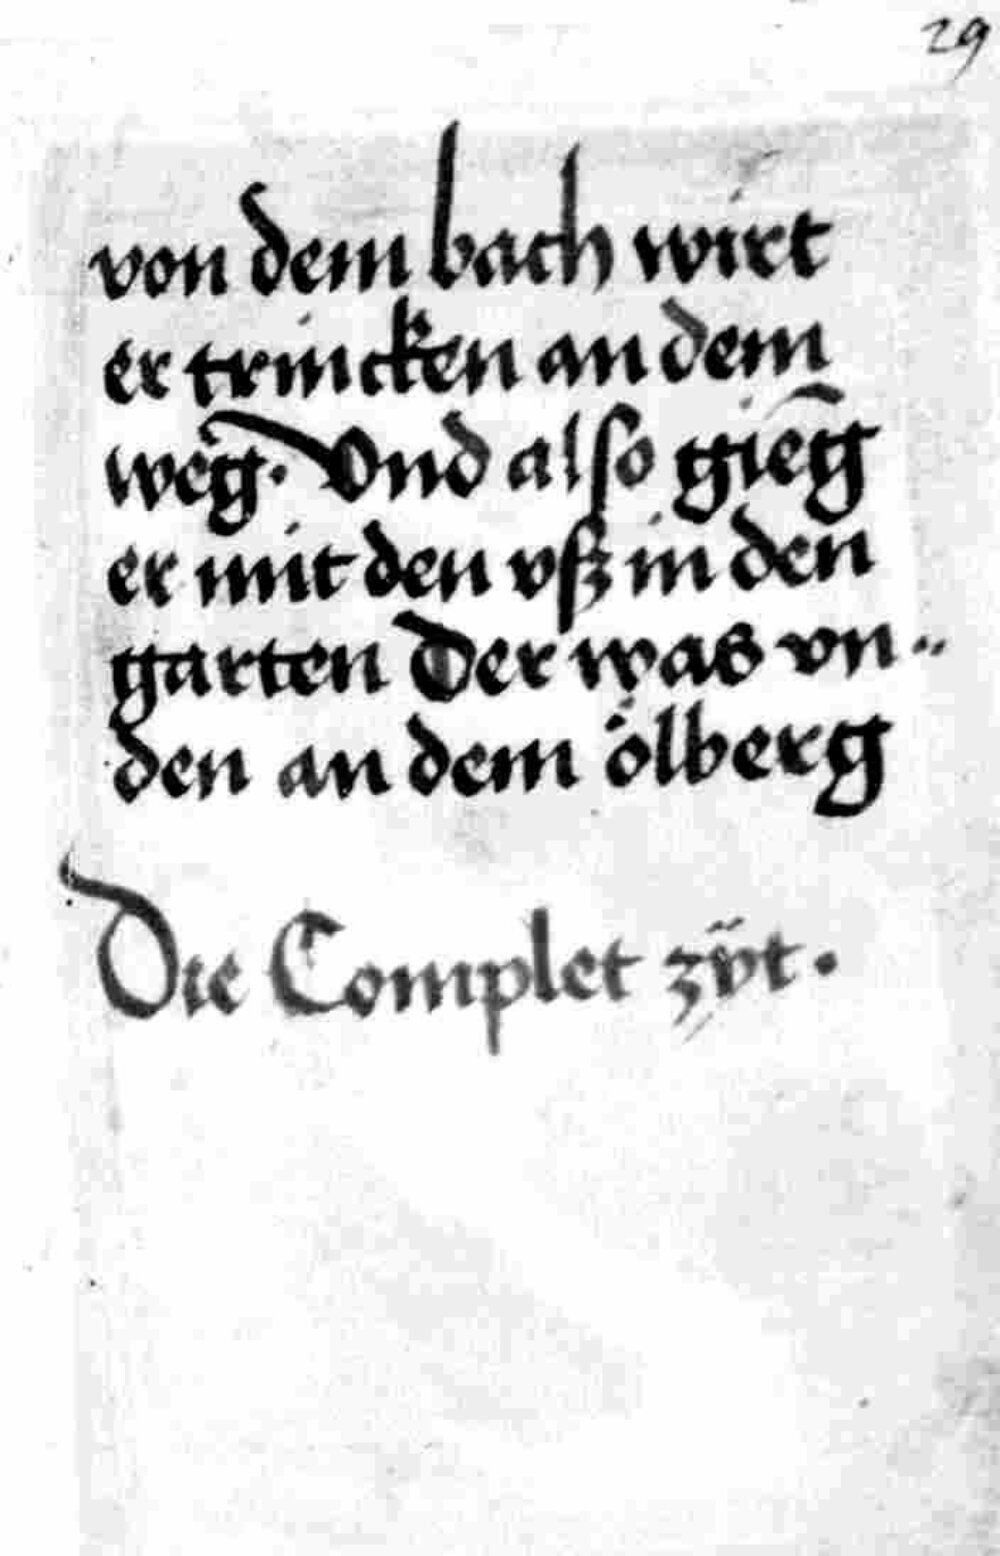 29
von dem bach wirt
er trincken an dem
weg. Vnd also giēg
er mit den vſz in den
garten Der was vn„
den an dem ölberg
Die Complet zÿt.